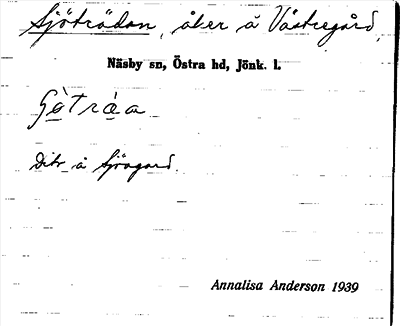 Sjöträdan, åker å Västregård,
Näsby sn, Östra hd, Jönk. l.
Do å Sjögard.
Annalisa Anderson 1939